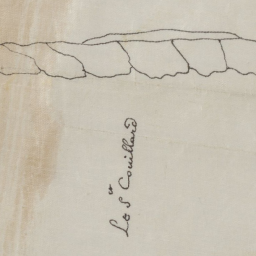 Ls Sr Couillard